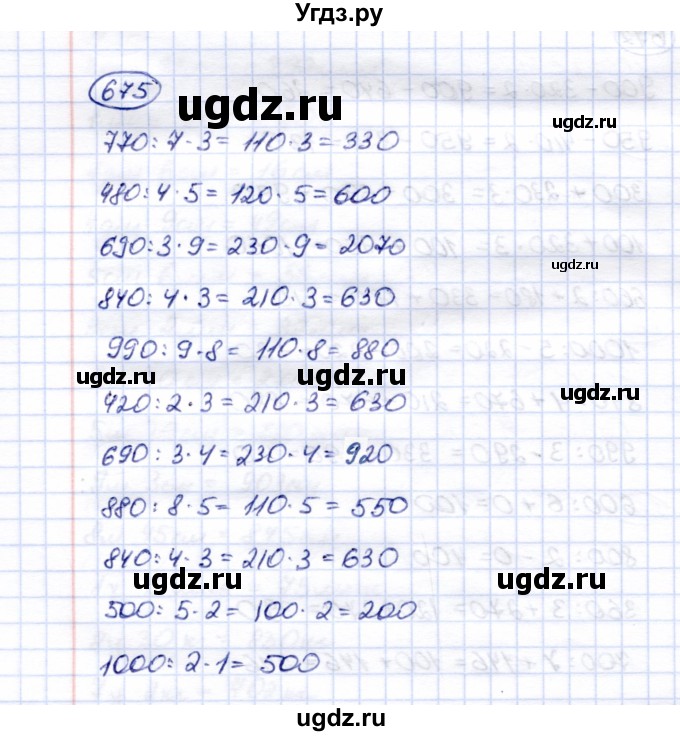 Угдз.ру
675
ugdz.ru
ugdz.ru
770 : 7 · 3 = 110 · 3 = 330
480 : 4 · 5 = 120 · 5 = 600
ugdz.ru
690 : 3 · 9 = 230 · 9 = 2070
840 : 4 · 3 = 210 · 3 = 630
990 : 9 · 8 = 110 · 8 = 880
ugdz.ru
ugdz.ru
ugdz.ru
420 : 2 · 3 = 210 · 3 = 630
690 : 3 · 4 = 230 · 4 = 920
880 : 8 · 5 = 110 · 5 = 550
840 : 4 · 3 = 210 · 3 = 630
ugdz.ru
ugdz.ru
500 : 5 · 2 = 100 · 2 = 200
1000 : 2 · 1 = 500
ugdz.ru